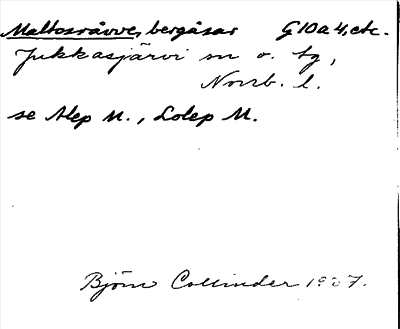 Maltosråvve, bergåsar G10a4, etc.
Jukkasjärvi sn o. tg,
Norrb. l.
se Alep M., Lolep M.
Björn Collinder 1937.